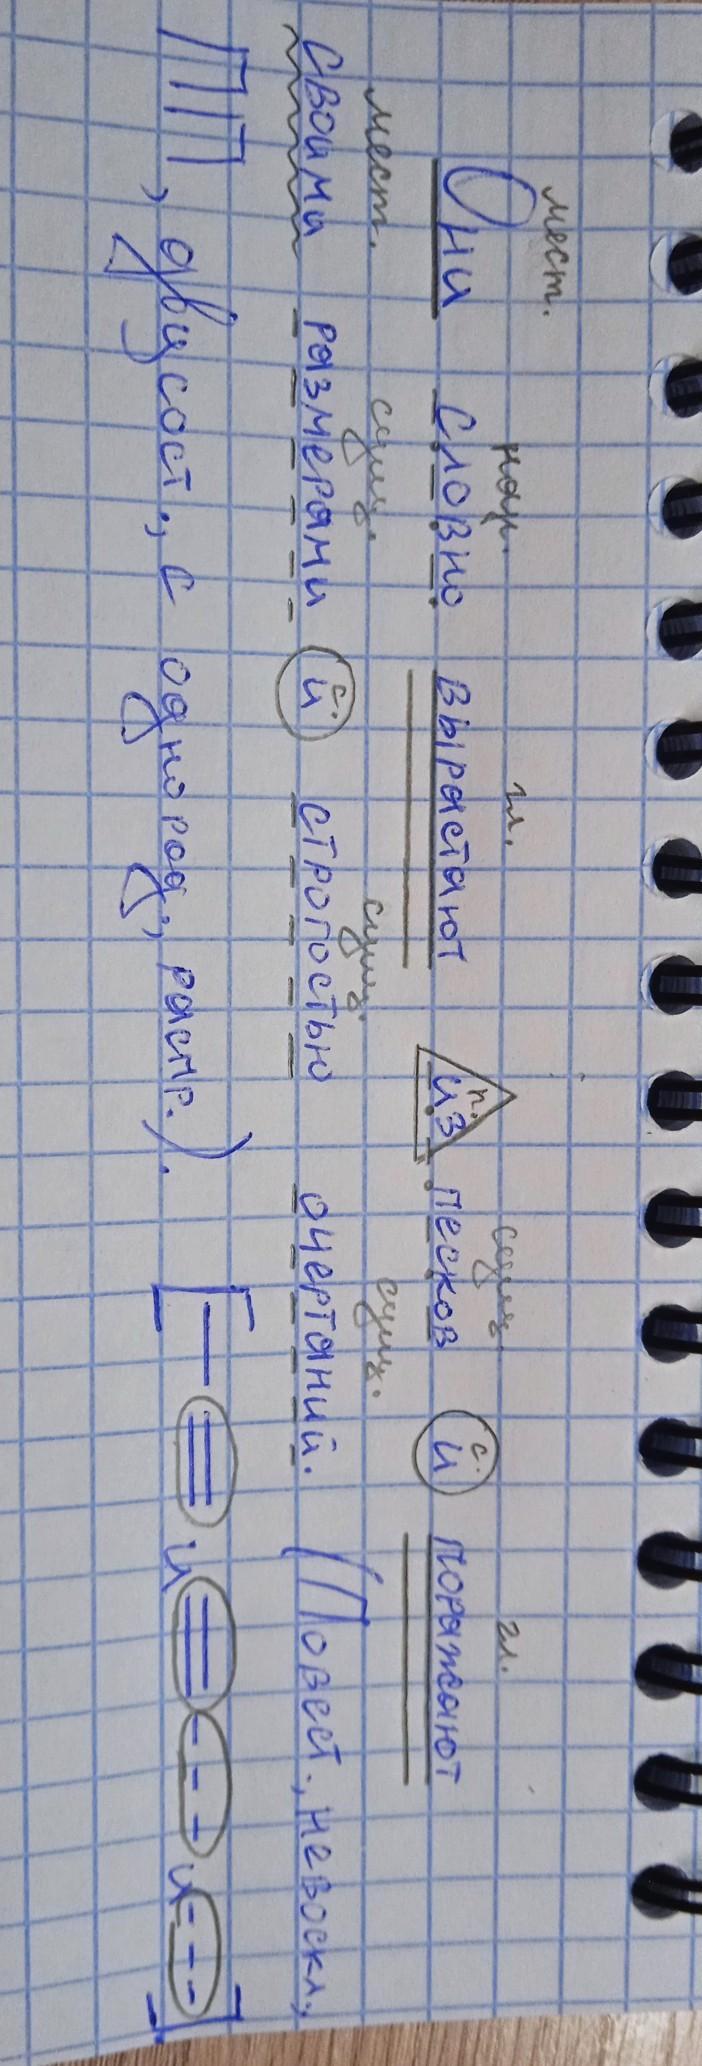 мест. нар. гл. п. сущ. с. гл.
Они словно вырастают из песков и поражают
мест. сущ. с. сущ. сущ.
своими размерами и строгостью очертаний. (Повест., невоскл.,
ПП, двусост., с однород., распр.). [— = и = --- и ---]